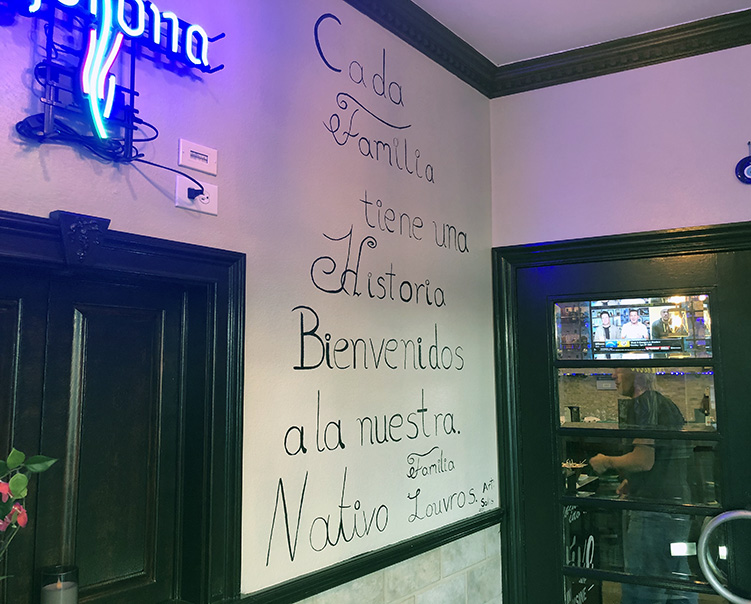 Corona
Cada
Familia
tiene una
Historia
Bienvenidos
a la nuestra.
Familia
Nativo Louvros.